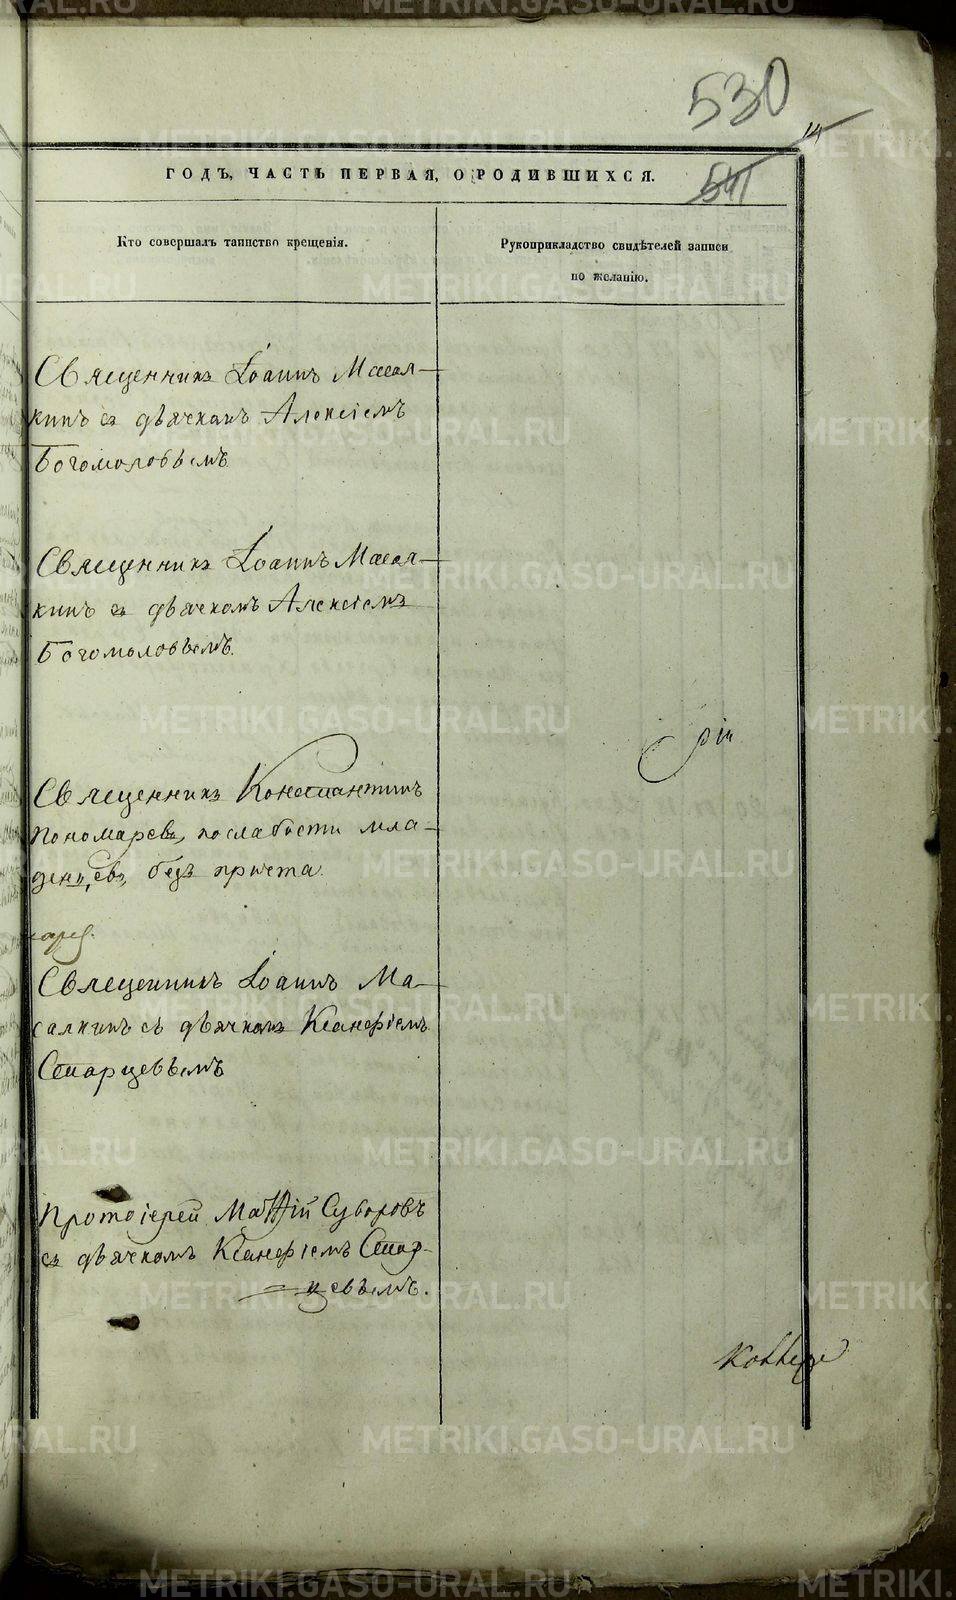 530
541
ГОДЪ, ЧАСТЬ ПЕРВАЯ, О РОДИВШИХСЯ.
Кто совершалъ таинство крещенія.
Рукоприкладство свидѣтелей записи
по желанію.
Священникъ Іоаннъ Масал-
кинъ съ дьячкомъ Алексіемъ
Богомоловымъ
Священникъ Іоаннъ Масал-
кинъ съ дьячкомъ Алексіемъ
Богомоловымъ.
Священникъ Константинъ
Пономаревъ, по слабости мла-
денцевъ, безъ причта.
Священникъ Іоаннъ Ма-
салкинъ съ дьячкомъ Ксанфіемъ
Старцевымъ
Протоіерей Матѳій Суворовъ
съ дьячкомъ Ксанфіемъ Стар-
цевымъ.
METRIKI.GASO-URAL.RU